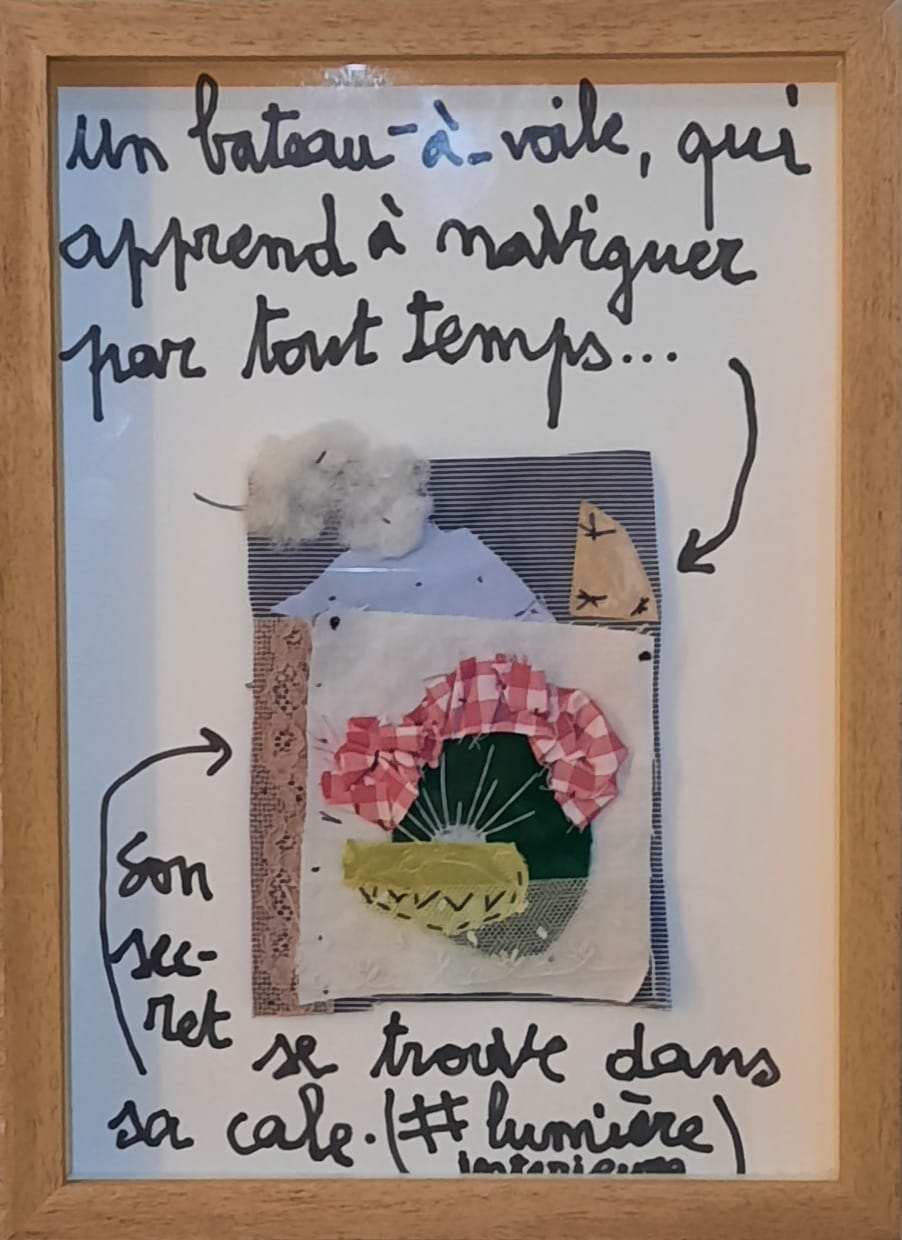 un bateau-à-voile, qui
apprend à naviguer
par tout temps...
son
sec-
ret
se trouve dans
sa cale. (#lumière
intérieure)